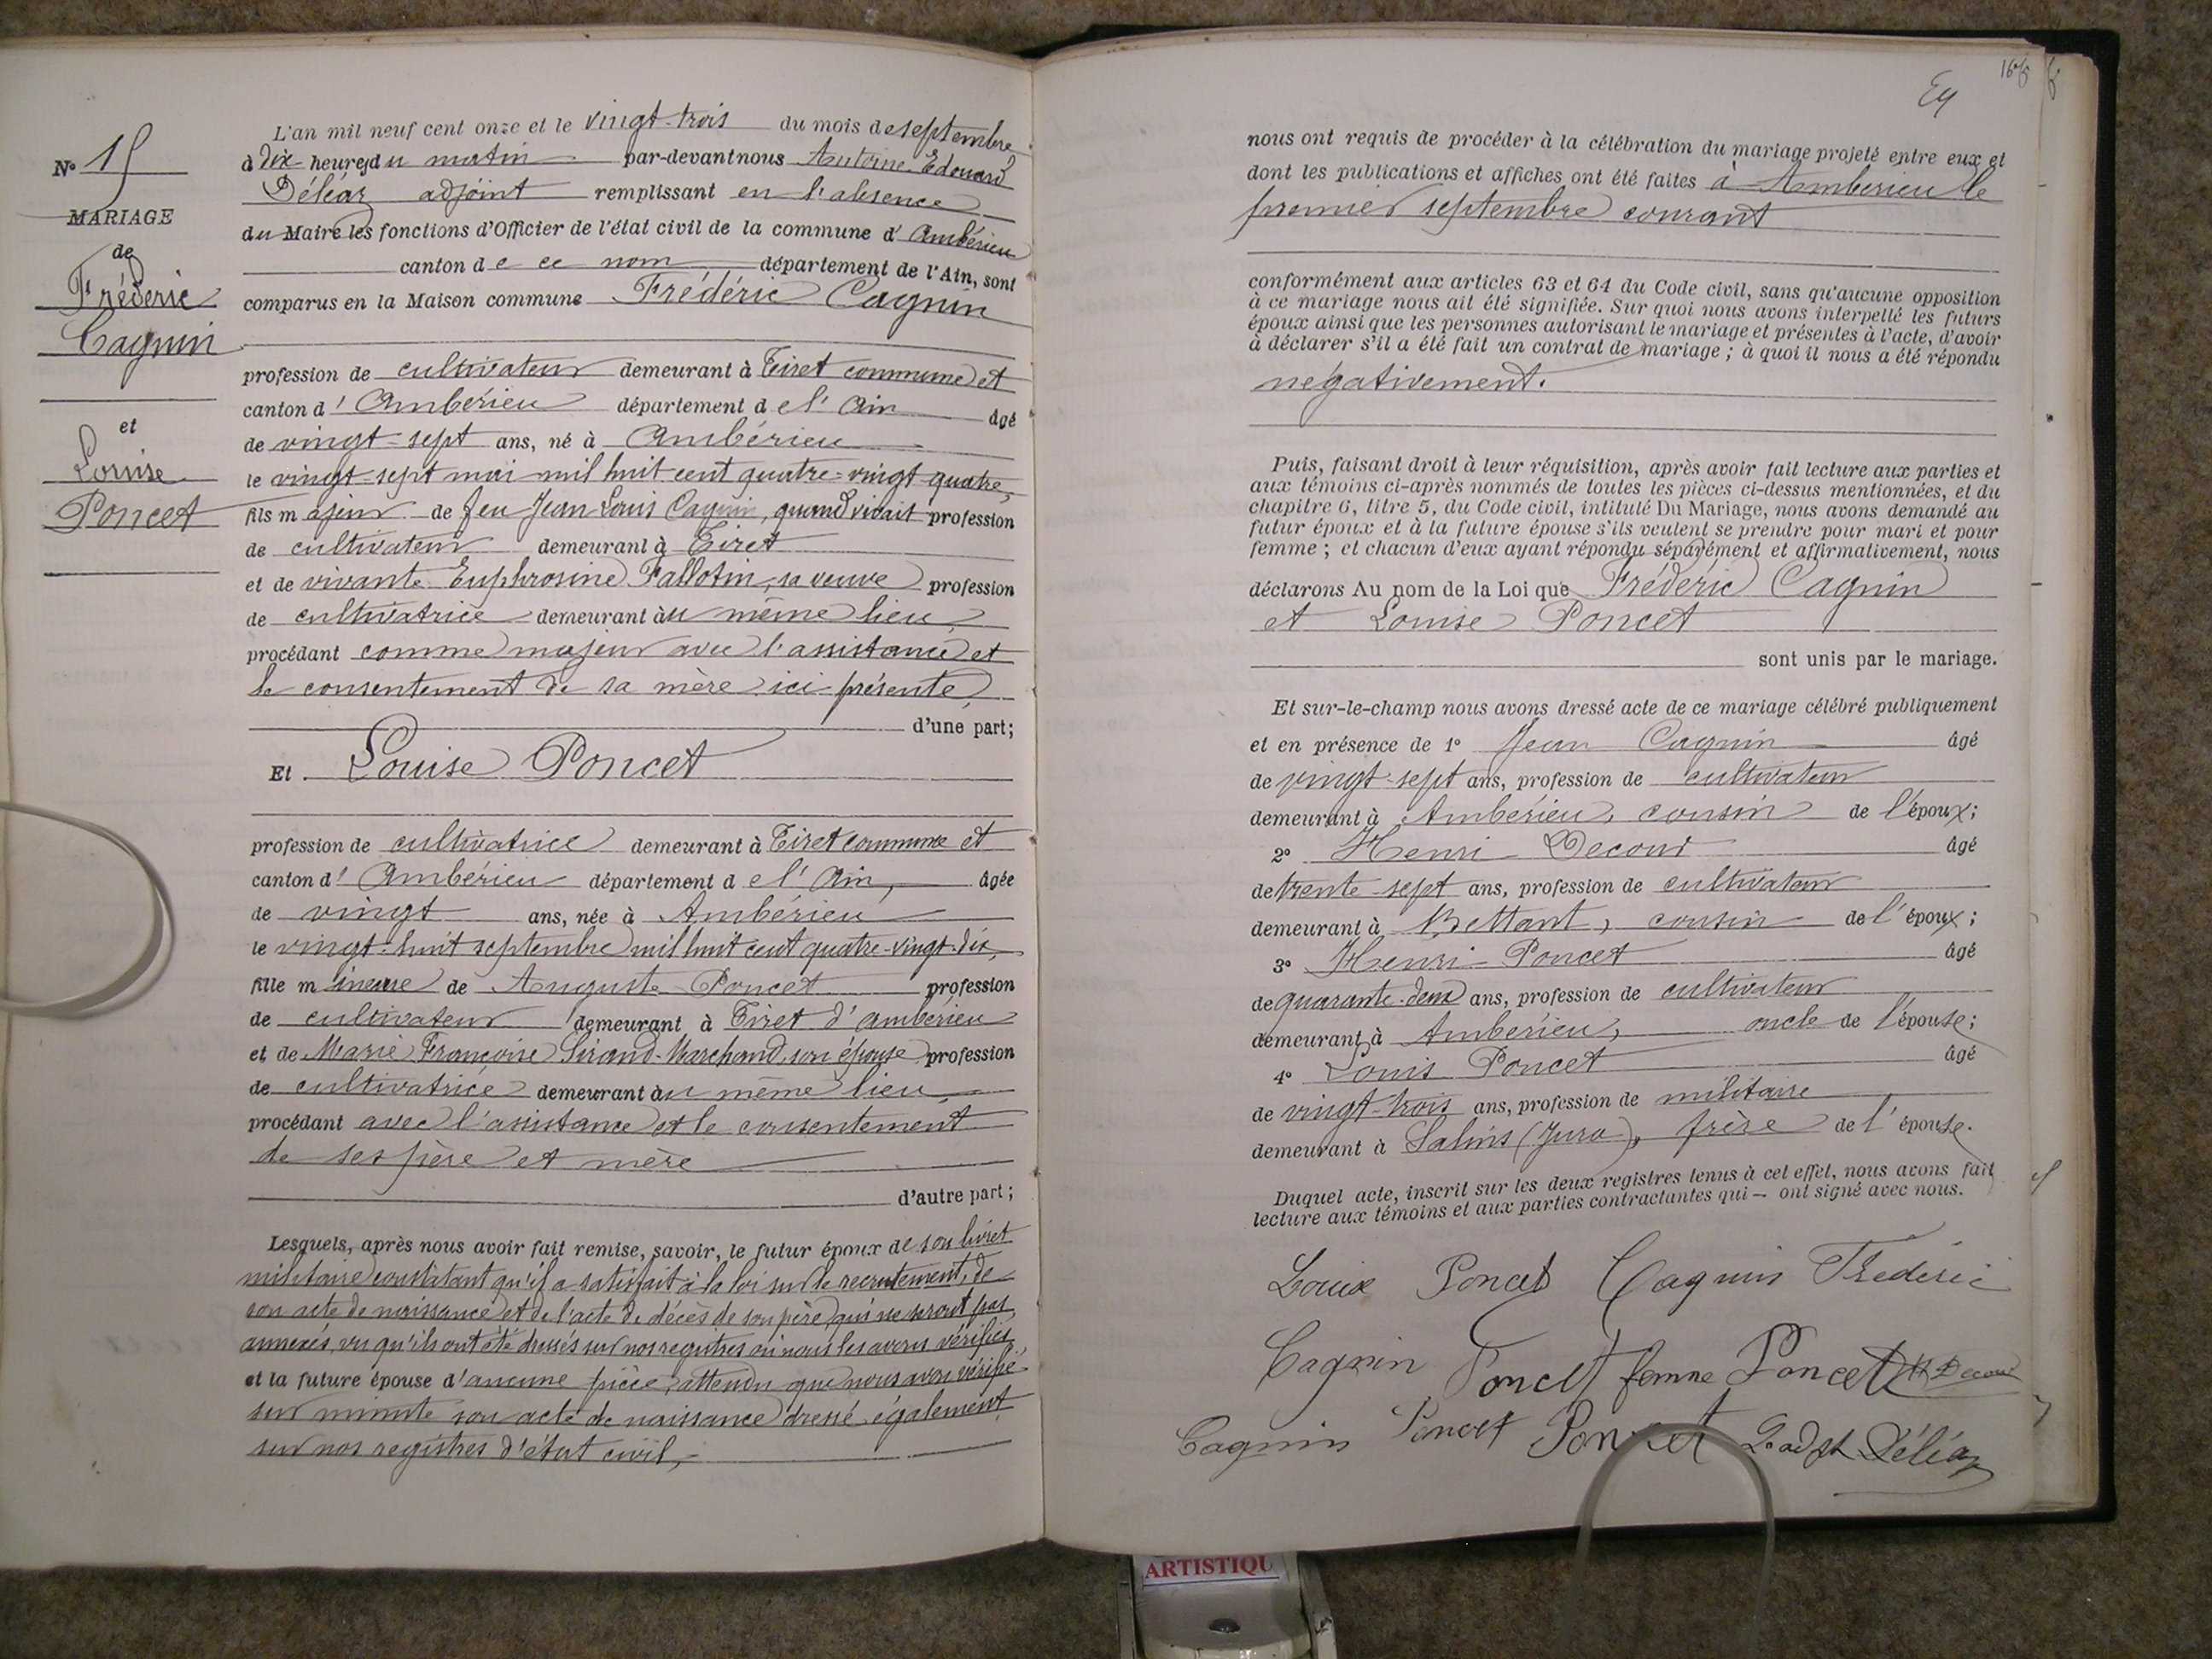 N° 15
MARIAGE
de
Fréderic
Cagnin
et
Louise
Poncet
L'an mil neuf cent onze et le vingt-trois du mois de septembre
à dix heures du matin par-devant nous Antoine Edouard
Déléaz adjoint remplissant en l'absence
du Maire les fonctions d'Officier de l'état civil de la commune d' Ambérieu
canton de ce nom département de l'Ain, sont
comparus en la Maison commune Frédéric Cagnin
profession de cultivateur demeurant à Tiret commune et
canton d' Ambérieu département de l' Ain âgé
de vingt-sept ans, né à Ambérieu
le vingt-sept mai mil huit cent quatre-vingt-quatre,
fils majeur de feu Jean Louis Cagnin, quand vivait profession
de cultivateur demeurant à Tiret
et de vivante Euphrosine Fallotin, sa veuve profession
de cultivatrice demeurant au même lieu,
procédant comme majeur avec l'assistance et
le consentement de sa mère ici présente,
d'une part;
Et Louise Poncet
profession de cultivatrice demeurant à Tiret commune et
canton d' Ambérieu département de l' Ain, âgée
de vingt ans, née à Ambérieu
le vingt-huit septembre mil huit cent quatre-vingt-dix,
fille mineure de Auguste Poncet profession
de cultivateur demeurant à Tiret d'Ambérieu
et de Marie Françoise Sirand-Marchand, son épouse profession
de cultivatrice demeurant au même lieu,
procédant avec l'assistance et le consentement
de ses père et mère
d'autre part;
Lesquels, après nous avoir fait remise, savoir, le futur époux de son livret
militaire constatant qu'il a satisfait à la loi sur le recrutement, de
son acte de naissance et de l'acte de décès de son père qui ne seront pas
annexés, vu qu'ils ont été dressés sur nos registres où nous les avons vérifiés
et la future épouse d'aucune pièce, attendu que nous avons vérifié
sur minute son acte de naissance dressé également
sur nos registres d'état civil,
165
nous ont requis de procéder à la célébration du mariage projeté entre eux et
dont les publications et affiches ont été faites à Amberieu le
premier septembre courant
conformément aux articles 63 et 64 du Code civil, sans qu'aucune opposition
à ce mariage nous ait été signifiée. Sur quoi nous avons interpellé les futurs
époux ainsi que les personnes autorisant le mariage et présentes à l'acte, d'avoir
à déclarer s'il a été fait un contrat de mariage; à quoi il nous a été répondu
négativement.
Puis, faisant droit à leur réquisition, après avoir fait lecture aux parties et
aux témoins ci-après nommés de toutes les pièces ci-dessus mentionnées, et du
chapitre 6, titre 5, du Code civil, intitulé Du Mariage, nous avons demandé au
futur époux et à la future épouse s'ils veulent se prendre pour mari et pour
femme; et chacun d'eux ayant répondu séparément et affirmativement, nous
déclarons Au nom de la Loi que Fréderic Cagnin
et Louise Poncet
sont unis par le mariage.
Et sur-le-champ nous avons dressé acte de ce mariage célébré publiquement
et en présence de 1° Jean Cagnin âgé
de vingt-sept ans, profession de cultivateur
demeurant à Ambérieu, cousin de l'époux;
2° Henri Decour âgé
de trente-sept ans, profession de cultivateur
demeurant à Bettant, cousin de l'époux;
3° Henri Poncet âgé
de quarante-deux ans, profession de cultivateur
demeurant à Ambérieu, oncle de l'épouse;
4° Louis Poncet âgé
de vingt-trois ans, profession de militaire
demeurant à Salins (Jura), frère de l'épouse.
Duquel acte, inscrit sur les deux registres tenus à cet effet, nous avons fait
lecture aux témoins et aux parties contractantes qui — ont signé avec nous.
Louise Poncet Cagnin Fréderic
Cagnin Poncet femme Poncet H Decour
Cagnin Poncet Poncet Déléaz
ARTISTIQU